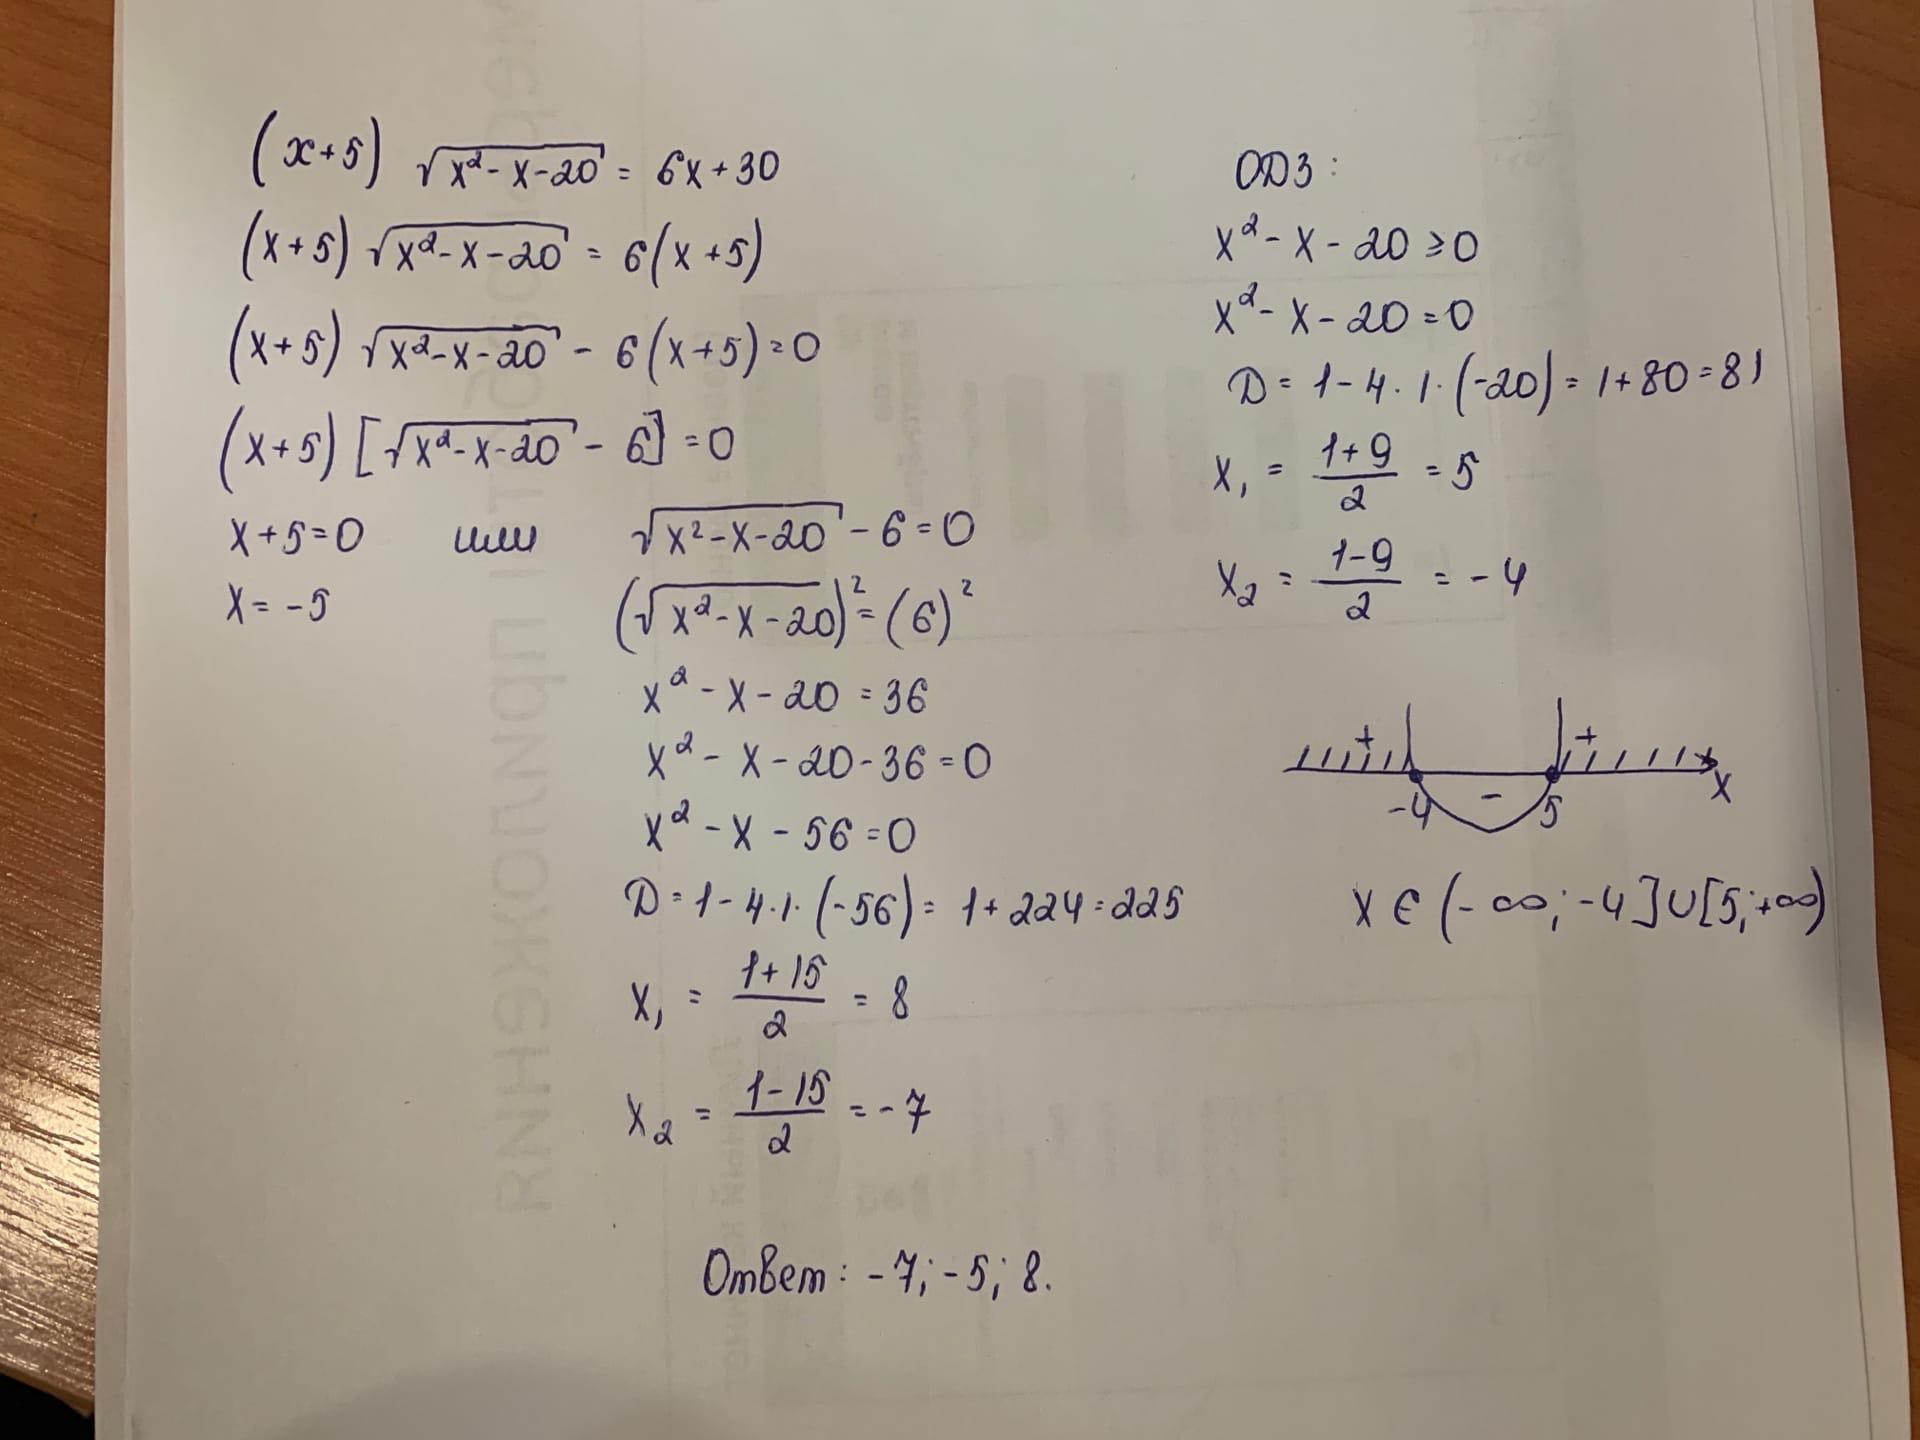 (x+5) √(x²-x-20) = 6x+30
(x+5) √(x²-x-20) = 6(x+5)
(x+5) √(x²-x-20) - 6(x+5)=0
(x+5) [√(x²-x-20) - 6] =0
x+5=0 или √(x²-x-20) - 6=0
x= -5 (√(x²-x-20))² = (6)²
x² - x - 20 = 36
x² - x - 20-36=0
x² - x - 56=0
D=1-4·1·(-56)= 1+224=225
x₁ = (1+15)/2 = 8
x₂ = (1-15)/2 = -7
Ответ: -7; -5; 8.
ОДЗ:
x²- x - 20 ≥0
x²- x - 20=0
D= 1-4·1·(-20)= 1+80=81
x₁ = (1+9)/2 = 5
x₂ = (1-9)/2 = -4
+ +
-4 - 5 x
x ∈ (-∞; -4]∪[5; +∞)